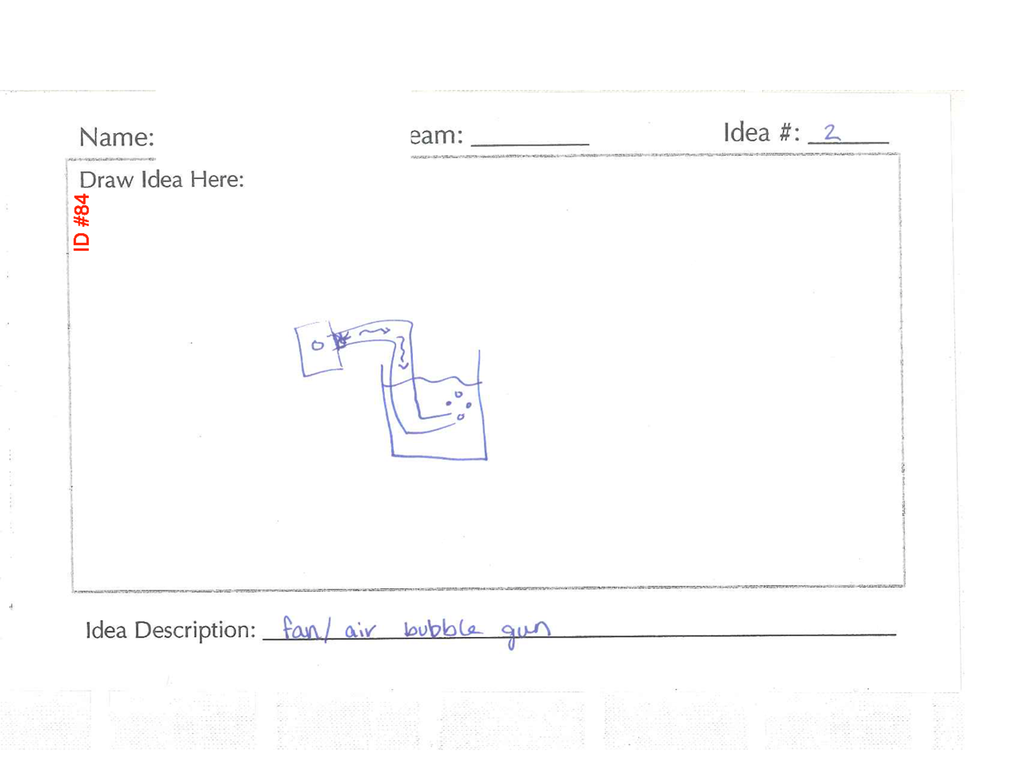 Name: eam: Idea #: 2
Draw Idea Here:
ID #84
Idea Description: fan/ air bubble gun